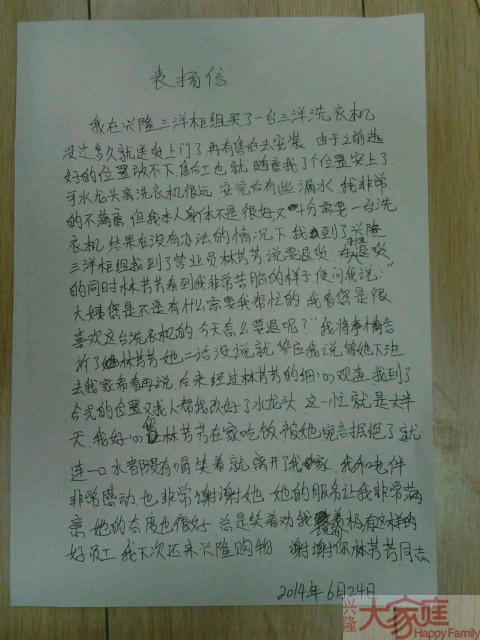 表扬信
我在兴隆三洋柜组买了一台三洋洗衣机
没过多久就送货上门了再有售后去安装 由于之前选
好的位置放不下 售后工也就 随意找了个位置安上了
可水龙头离洗衣机很远 安完后有些漏水 我非常
的不满意 但我本人身体不是很好又十分需要一台洗
衣机 结果在没有办法的情况下 我来到了兴隆
三洋柜组找到了营业员林芳芳说要退货 在退货
的同时林芳芳看到我非常苦脑的样子便问我说:"
大姨您是不是有什么需要我帮忙的 我看您是很
喜欢这台洗衣机的 今天怎么要退呢?"我将事情告
诉了林芳芳她二话没说就答应我说等她下班
去我家看看再说 后来经过林芳芳的细心观查 找到了
合式的位置又找人帮我改好了水龙头 这一忙就是大半
天 我好心留林芳芳在家吃饭 被她宛言拒绝了 就
连一口水都没有喝笑着就离开了我家 我和老伴
非常感动 也非常谢谢她 她的服务让我非常满
意 她的态度也很好 总是笑着劝我 有这样的
好员工 我下次还来兴隆购物 谢谢你林芳芳同志
2014年6月24日
兴隆 大家庭
HappyFamily